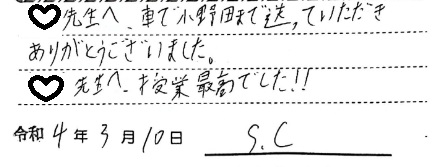 ♥先生へ、車で小野田まで送っていただき
ありがとうございました。
♥先生へ、授業最高でした!!
令和4年3月10日 S.C